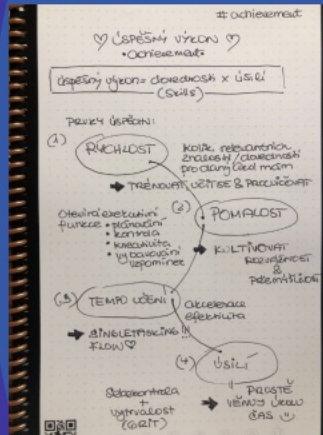 # achievement
♡ ÚSPĚŠNÝ VÝKON ♡
• achievement •
úspěšný výkon = dovednosti x úsilí
(skills)
PRVKY ÚSPĚCHU:
(1)
RYCHLOST
Kolik relevantních
znalostí/dovedností
pro daný úkol mám
➡ TRÉNOVAT, UČIT SE & PROCVIČOVAT
(2)
POMALOST
Otevírá exekutivní
funkce
• plánování
• kontrola
• kreativita
• vybavování
vzpomínek
➡ KULTIVOVAT
ROZVÁŽNOST
&
PŘEMÝŠLIVOST
(3)
TEMPO UČENÍ
Akcelerace
efektivita
➡ SINGLETASKING !!!
FLOW ♡
(4)
ÚSILÍ
Sebekontrola
+
vytrvalost
(GRIT)
➡ PROSTĚ
VĚNUJ ÚKOLU
ČAS